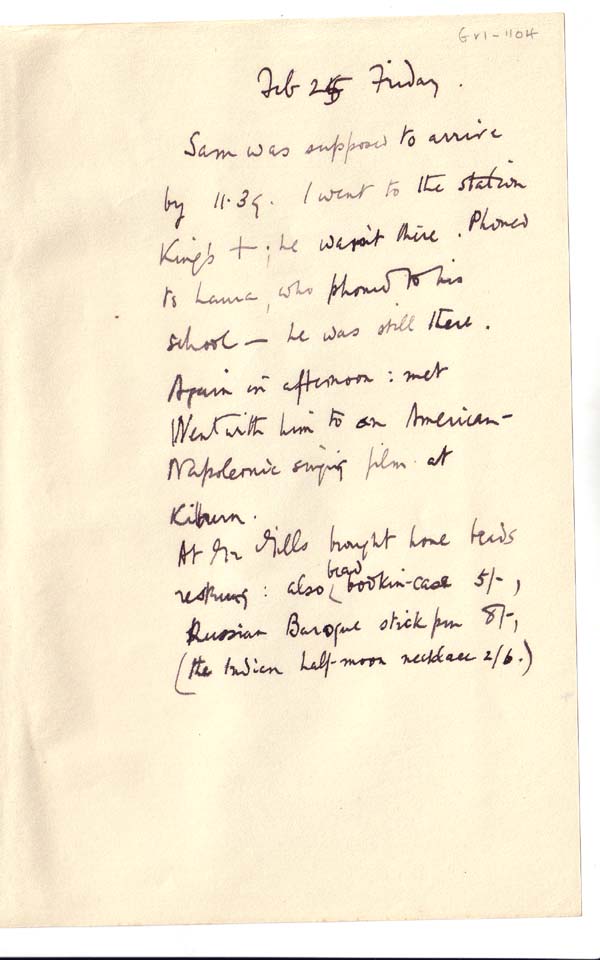 Gr1-1104
Feb 25 Friday.
Sam was supposed to arrive
by 11.39. I went to the station
King's +; he wasn't there. Phoned
to Laura, who phoned to his
school — he was still there.
Again in afternoon: met
Went with him to an American-
Napoleonic singing film at
Kilburn.
At Gills brought home beads
restrung: also bead bodkin-case 5/-,
Russian Baroque stick pin 8/-,
(the Indian half-moon necklace 2/6.)